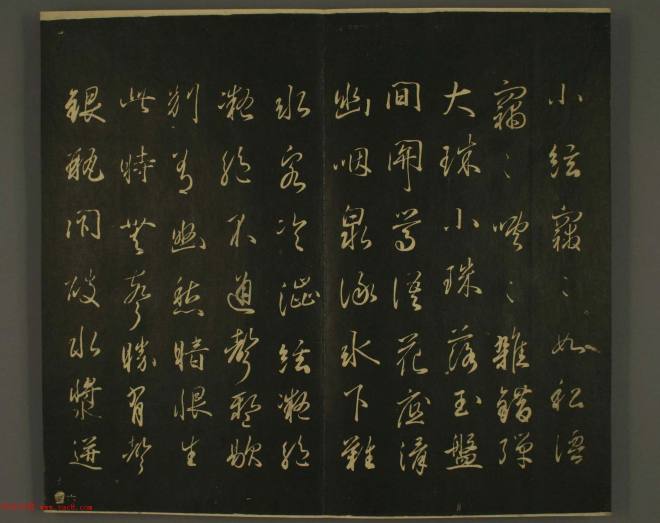 小絃竊〻如私語
竊〻嘈〻雜錯彈
大珠小珠落玉盤
間關鶯語花底滑
幽咽泉流氷下難
水泉冷澀絃凝絕
凝絕不通聲暫歇
別有幽愁暗恨生
此時無聲勝有聲
銀瓶破水漿迸
www.yac8.com